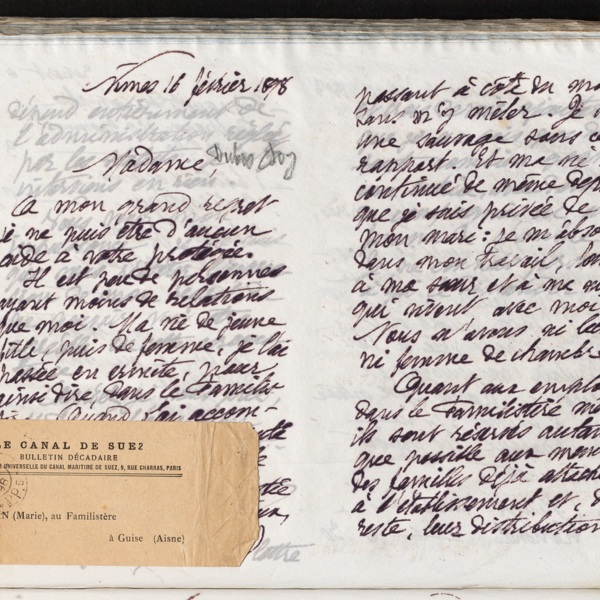 Nîmes 16 février 1898
Madame, Dubos
À mon grand regret
je ne puis être d'aucun
aide à votre protégée.
Il est peu de personnes
ayant moins de relations
que moi. Ma vie de jeune
fille, puis de femme, je l'ai
passée en ermite, pour
ainsi dire, dans le Familis
Quand j'ai accom-
LE CANAL DE SUEZ
BULLETIN DÉCADAIRE
UNIVERSELLE DU CANAL MARITIME DE SUEZ, 9, RUE CHARRAS, PARIS
N (Marie), au Familistère
à Guise (Aisne)
lettre
passant à côté du mo
sans m'y mêler. Je
une sauvage sous c
rapport. Et ma vie
continue de même dep
que je suis privée de
mon mari: je m'abso
dans mon travail,
à ma sœur et à ma
qui vivent avec moi
Nous n'avons ni
ni femme de chambre
Quant aux emplo
dans le Familistère mê
ils sont réservés autan
que possible aux mem
des familles déjà attaché
à l'établissement et, d
reste, leur distribution